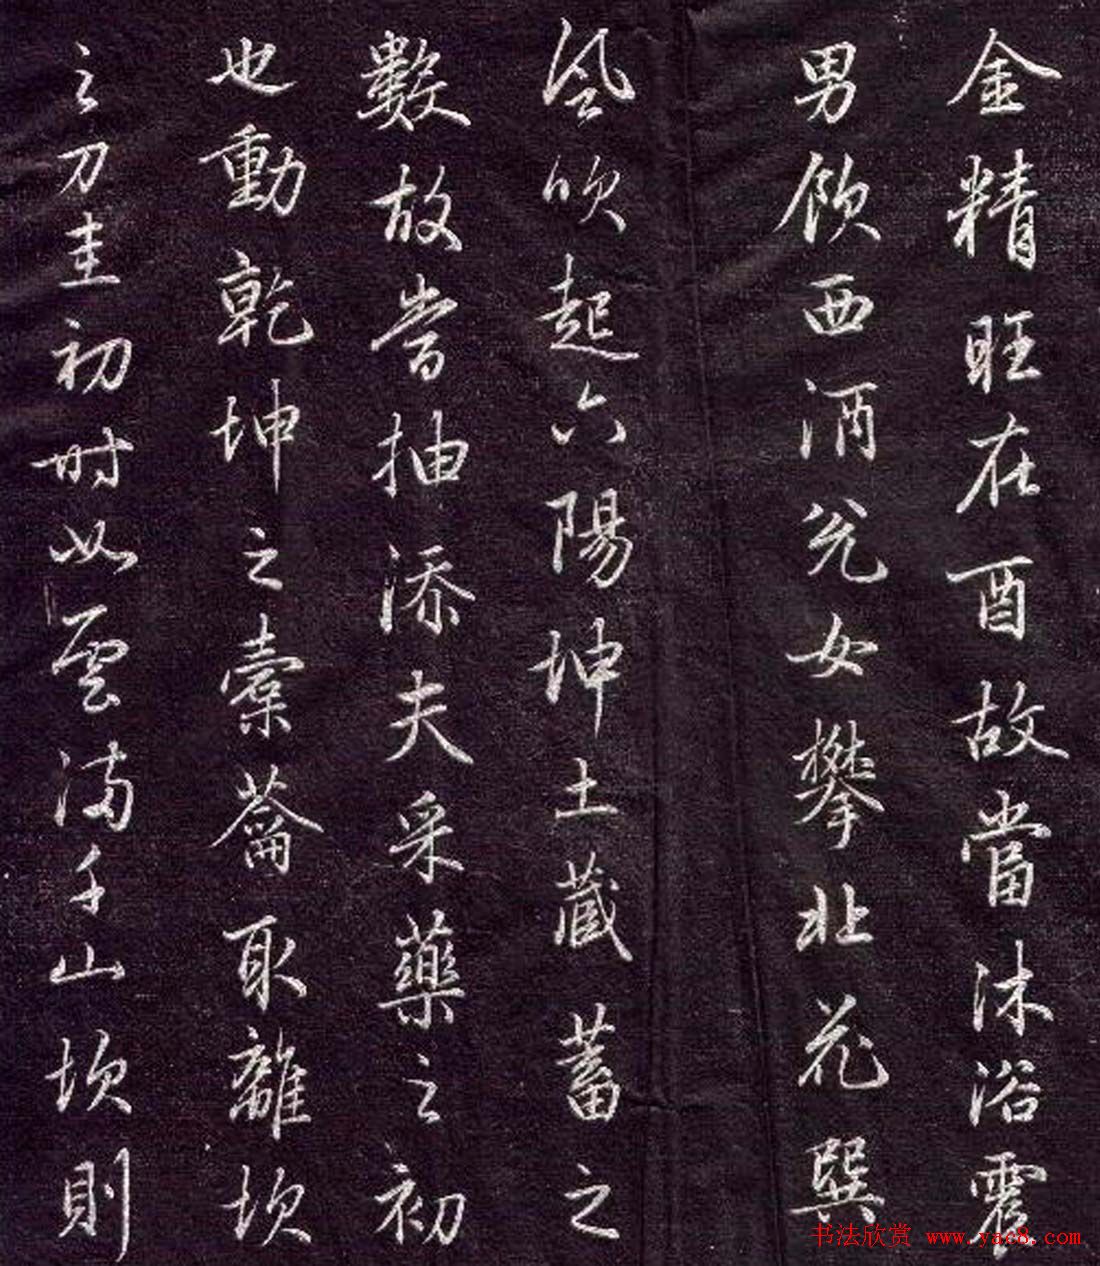 金精旺在酉故當沐浴震
男飲西酒兌女攀北花巽
風吹起六陽坤土藏蓄之
數故當抽添夫采藥之初
也動乾坤之橐籥取離坎
之刀圭初時如雲滿千山坎則
书法欣赏 www.yac8.com